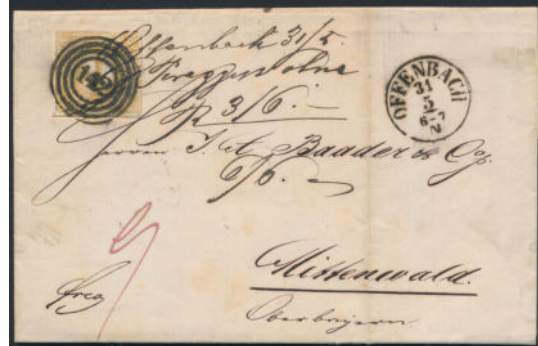 Offenbach 31/5.
145
OFFENBACH
31
5
6-7
N
3/6. –
Herren J. A. Baader & Cp.
6/6. –
Mittenwald.
Oberbayern.
frco